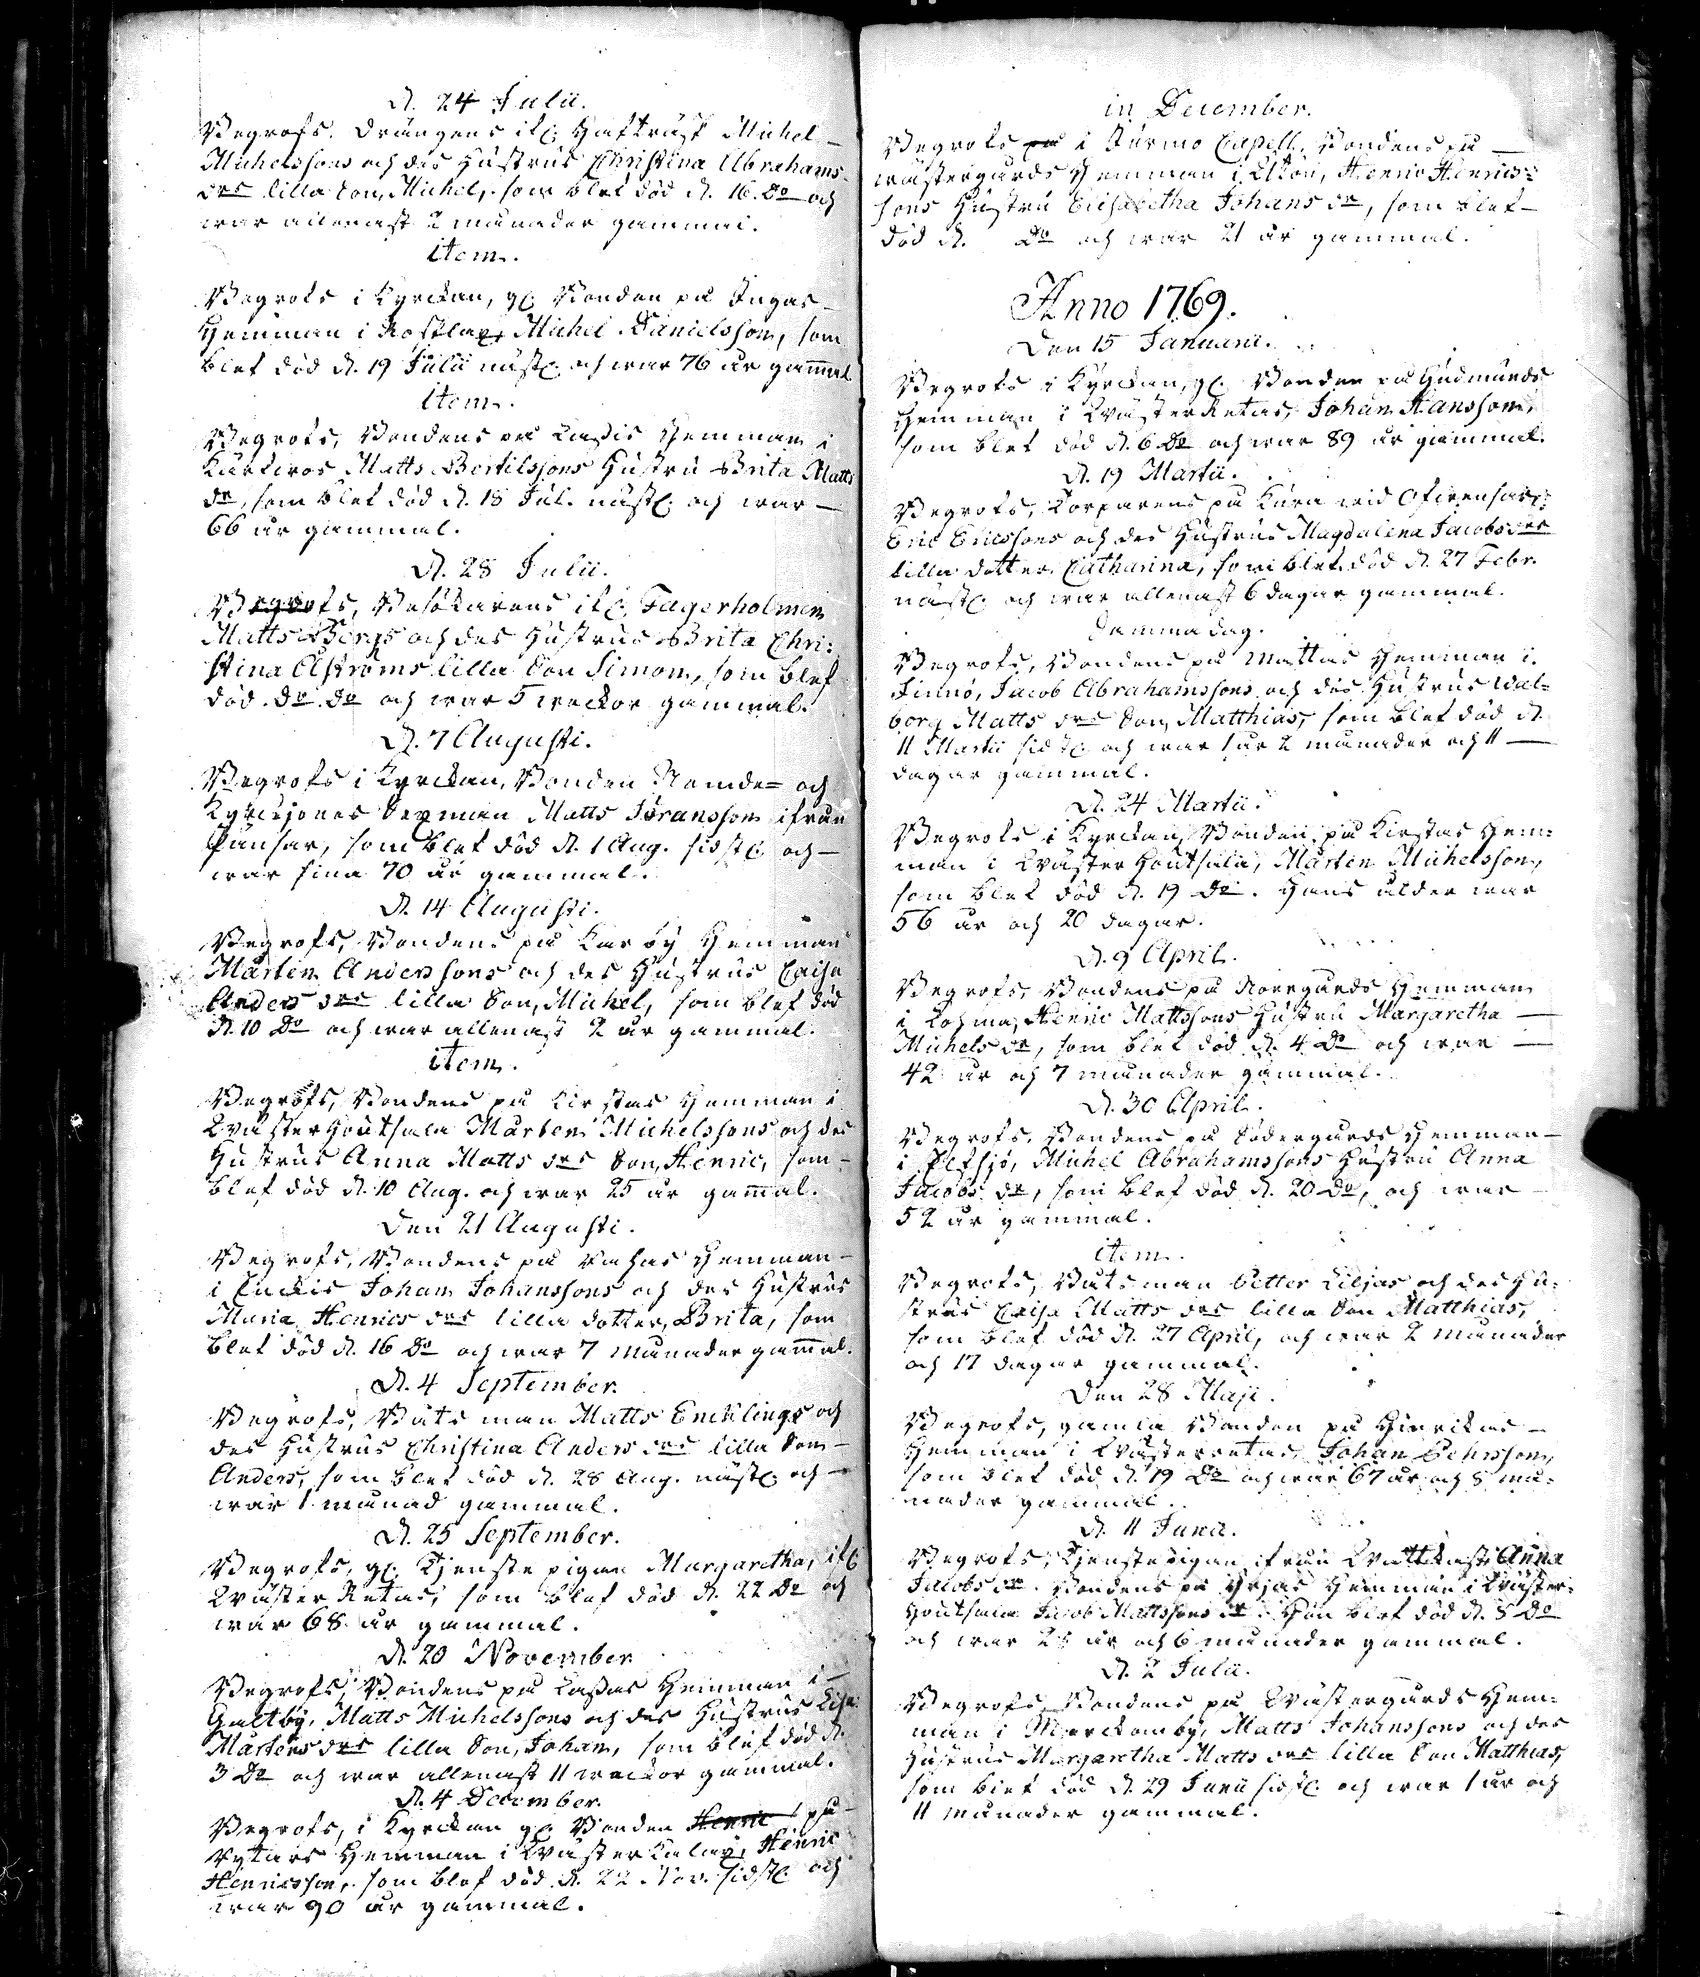 d. 24 Julii.
Begrofs. Drängens ifr. Haftrüsk Michel
Michelssons och des Hustrus Christina Abrahams
drs lilla Son, Michel, som blef död d. 16. Do och
war allenast 2 månader gammal.
item.
Begrofs i Kyrckan, gl. Bonden på Ingas
Hemman i Rofslax, Michel Danielsson, som
blef död d. 19 Julii näst. och war 76 år gammal
item.
Begrofs, Bondens på Lassis Hemman i
Matts Bertilssons Hustru Brita Matts
dr, som blef död d. 18 Jul. näst. och war
66 år gammal.
d. 28 Julii.
Begrofs, Besökarens ifr. Fagerholmen
Matts Bergs och des Hustrus Brita Chri-
stina Åströms lilla Son Simon, som blef
död do Do och war 5 weckor gammal.
d. 7 Augusti.
Begrofs i Kyrckan, Bonden Nämde= och
Kyrckjones Sexman Matts Göransson ifrån
Pänsar, som blef död d. 1 Aug. sidstl. och
war sina 70 år gammal.
d. 14 Augusti.
Begrofs, Bondens på Karby Hemman
Mårten Anderssons och des Hustrus Caisa
Anders drs lilla Son, Michel, som blef död
d. 10 Do och war allenast 2 år gammal.
item.
Begrofs, Bondens på Kirstas Hemman i
Wäster Houtsala Mårten Michelssons och des
Hustrus Anna Matts drs Son, Henric, som
blef död d. 10 Aug. och war 25 år gammal.
Den 21 Augusti.
Begrofs, Bondens på Hemman
i Johan Johanssons och des Hustrus
Maria Henrics drs lilla dotter, Brita, som
blef död d. 16 Do och war 7 Månader gammal.
d. 4 September.
Begrofs, Båtsman Matts Encklings och
des Hustrus Christina Anders drs lilla Son
Anders, som blef död d. 28 Aug. näst. och
war 1 månad gammal.
d. 25 September.
Begrofs, gl. Tjenste pigan Margaretha, ifr
Wäster Retais, som blef död d. 22 Do och
war 68 år gammal.
d. 20 November
Begrofs, Bondens på Lassas Hemman i
Galtby, Matts Michelssons och des Hustrus Lisa
Mårtens drs lilla Son, Johan, som blef död d.
3 Do och war allenast 11 weckor gammal.
d. 4 December.
Begrofs, i Kyrckan gl. Bonden Henric på
Rytars Hemman i Wäster Kalax, Henric
Henricsson, som blef död d. 22 Nov. sidstl. och
war 90 år gammal.
in December.
Begrofs på i Jurmo Capell, Bondens på
wästergårds Hemman i Utön, Henric Henrics-
sons Hustru Elisabetha Johans dr, som blef
död d. Do och war 21 år gammal.
Anno 1769.
Den 15 Januarii.
Begrofs i Kyrckan, gl. Bonden på Gudmunds
Hemman i Wäster Retais, Johan Hansson,
som blef död d. 6 Do och war 89 år gammal.
d. 19 Martii.
Begrofs, Torparens på Kåra wid Ofwensar,
Eric Ericssons och des Hustrus Magdalena Jacobs drs
lilla dotter Catharina, som blef död d. 27 Febr.
näst. och war allenast 6 dagar gammal.
Samma dag.
Begrofs, Bondens på Mattas Hemman i
Finnö, Jacob Abrahamssons och des Hustrus Wal-
borg Matts drs Son, Matthias, som blef död d.
11 Martii sidstl. och war 1 år 2 månader och 11
dagar gammal.
d. 24 Martii.
Begrofs i Kyrckan, Bonden på Kirstas Hem-
man i Wäster Houtsala, Mårten Michelsson,
som blef död d. 19 Do. Hans ålder war
56 år och 20 dagar.
d. 9 April.
Begrofs, Bondens på Norrgårds Hemman
i Lohma, Henric Mattssons Hustru Margaretha
Michels dr, som blef död d. 4 Do och war
42 år och 7 månader gammal.
d. 30 April.
Begrofs, Bondens på Södergårds Hemman
i Elfsjö, Michel Abrahamssons Hustru Anna
Jacobs dr, som blef död d. 20 Do, och war
52 år gammal.
item.
Begrofs, Båtsman Petter Liljas och des Hu-
strus Caisa Matts drs lilla Son Matthias,
som blef död d. 27 April, och war 2 Månader
och 17 dagar gammal.
Den 28 Maji.
Begrofs, gamla Bonden på Hinrikas
Hemman i Wästerretais, Johan Pehrsson,
som blef död d. 19 Do och war 67 år och 8 må-
nader gammal.
d. 11 Junii.
Begrofs, Tjenstepigan ifrån Wattkast Anna
Jacobs dr. Bondens på Yrjas Hemman i Wäster-
Houtsala Jacob Mattssons dr. Hon blef död d. 8 Do
och war 25 år och 6 månader gammal.
d. 2 Julii.
Begrofs, Bondens på Wästergårds Hem-
man i Merckomby, Matts Johanssons och des
Hustrus Margaretha Matts drs lilla Son Matthias,
som blef död d. 29 Junii sidstl. och war 1 år och
11 månader gammal.